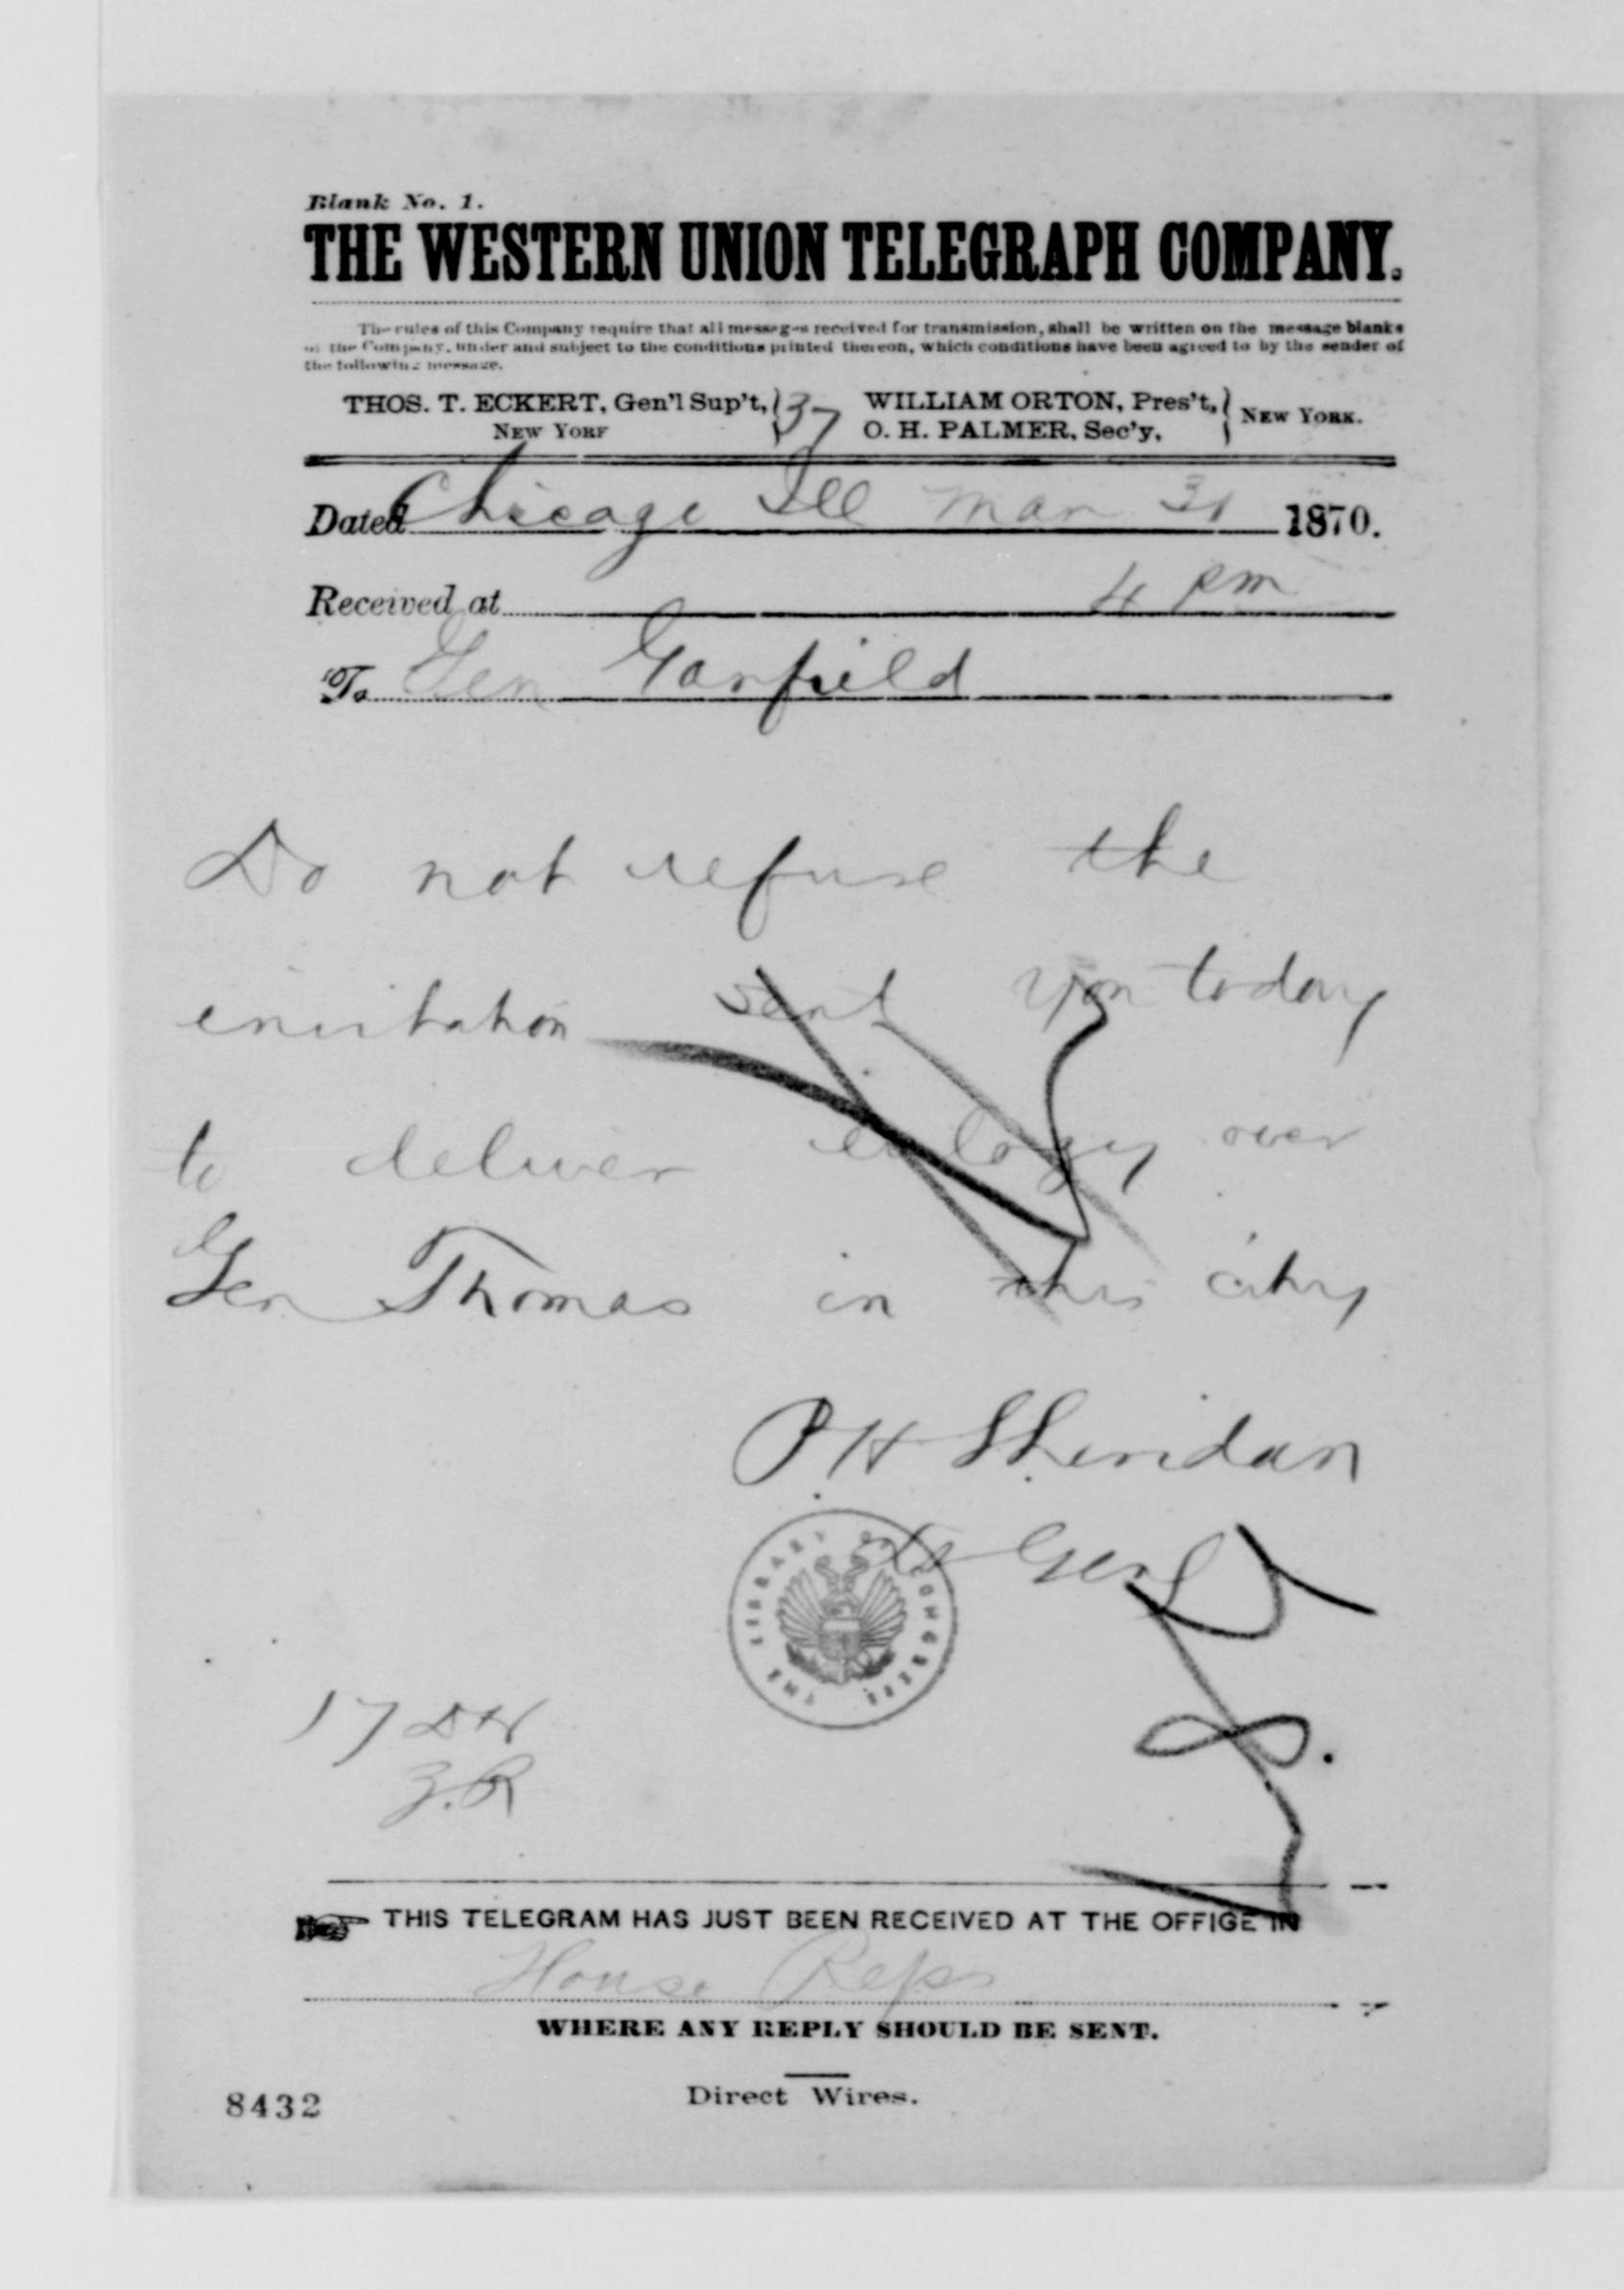 Blank No. 1.
THE WESTERN UNION TELEGRAPH COMPANY.
The rules of this Company require that all messages received for transmission, shall be written on the message blanks
of the Company, under and subject to the conditions printed thereon, which conditions have been agreed to by the sender of
the following message.
THOS. T. ECKERT, Gen'l Sup't, 37 WILLIAM ORTON, Pres't,
NEW YORK O. H. PALMER, Sec'y, NEW YORK.
Dated Chicago Ill Mar 31 1870.
Received at 4 pm
To Gen Garfield
Do not refuse the
invitation sent you today
to deliver eulogy over
Gen Thomas in this city
P H Sheridan
Lt Genl
THE LIBRARY OF CONGRESS
17 DH
THIS TELEGRAM HAS JUST BEEN RECEIVED AT THE OFFICE IN
House Reps
WHERE ANY REPLY SHOULD BE SENT.
Direct Wires.
8432